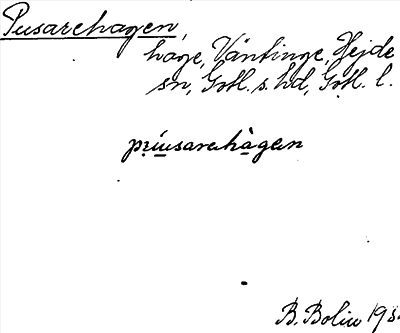 Pusarehagen,
hage, Väntinge, Hejde
sn, Gotl. s. hd, Gotl. l.
priusarehàgen
B. Bolin